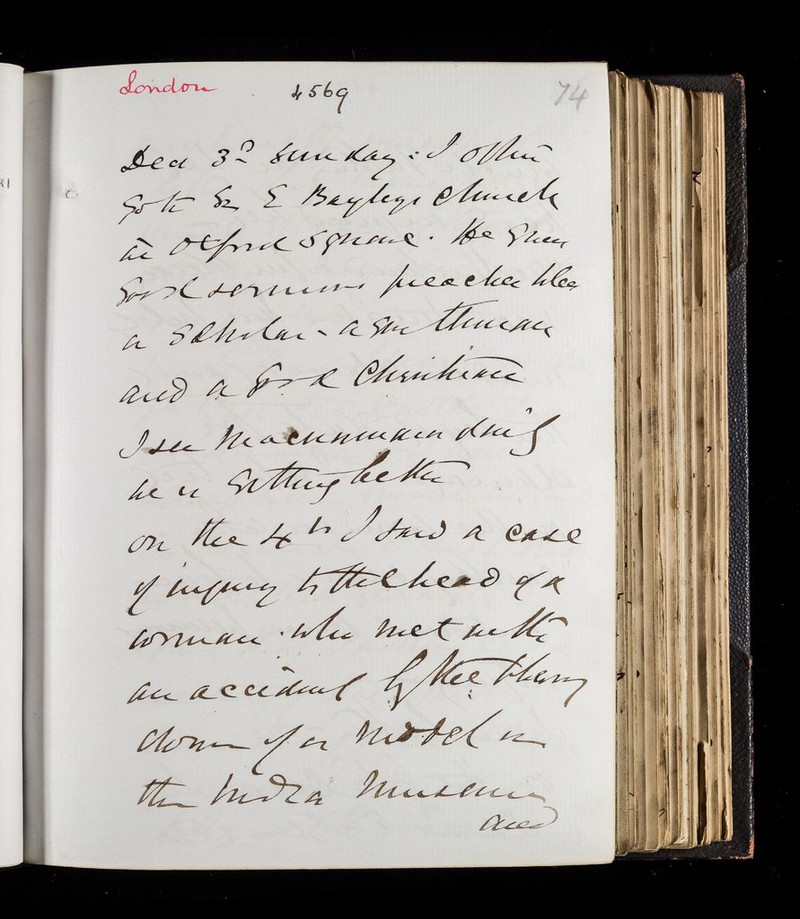 London 4569 74
Dec 3rd Sunday: I often
go to Sr E Bayleys Church
in Oxford Square. He gives
good sermons preaches like
a Scholar - a gentleman
and a good Christian
I see Macnamara daily
he is getting better
on the 4th I saw a case
of injury to the head of a
woman. who met with
an accident by the
down of a model in
the India Museum
and